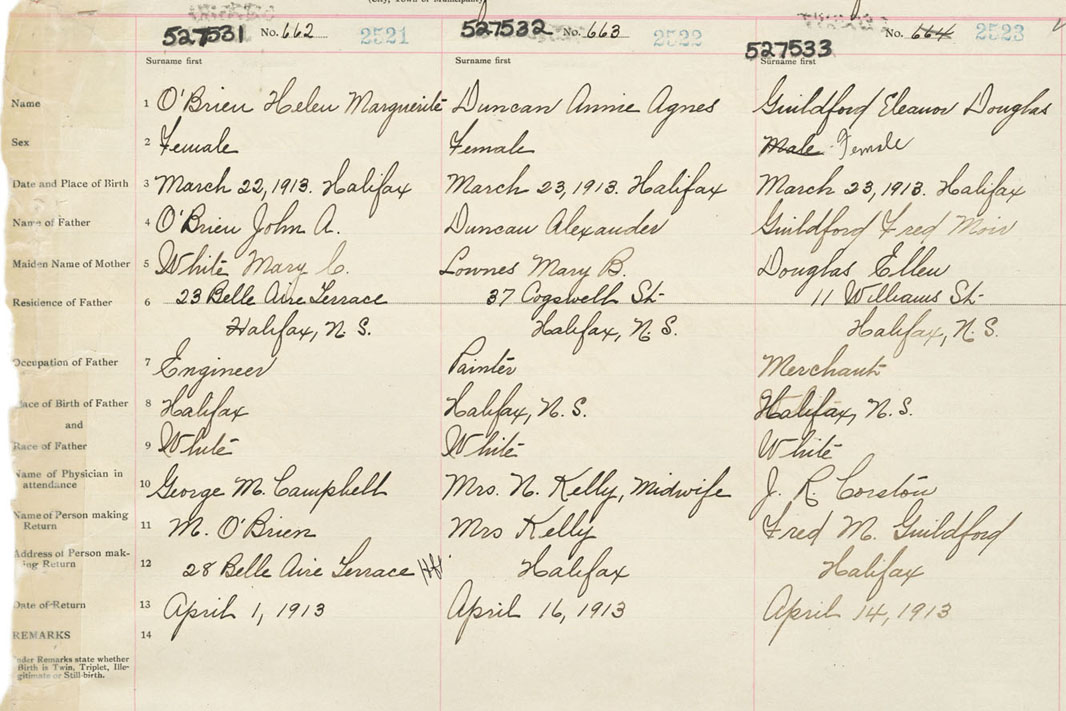 (City, Town or Municipality)
527531 No. 662 2521
527532 No. 663 2522
527533 No. 664 2523
Surname first Surname first Surname first
Name 1 O'Brien Helen Marguerite Duncan Annie Agnes Guildford Eleanor Douglas
Sex 2 Female Female Male Female
Date and Place of Birth 3 March 22, 1913. Halifax March 23, 1913. Halifax March 23, 1913. Halifax
Name of Father 4 O'Brien John A. Duncan Alexander Guildford Fred Moir
Maiden Name of Mother 5 White Mary C. Lownes Mary B. Douglas Ellen
Residence of Father 6 23 Belle Aire Terrace 37 Cogswell St- 11 Williams St-
Halifax, N.S. Halifax, N.S. Halifax, N.S.
Occupation of Father 7 Engineer Painter Merchant
Place of Birth of Father 8 Halifax Halifax, N.S. Halifax, N.S.
and
Race of Father 9 White White White
Name of Physician in
attendance 10 George M. Campbell Mrs. N. Kelly, Midwife J. R. Corston
Name of Person making
Return 11 M. O'Brien Mrs Kelly Fred M. Guildford
Address of Person mak-
ing Return 12 28 Belle Aire Terrace Hfx Halifax Halifax
Date of Return 13 April 1, 1913 April 16, 1913 April 14, 1913
REMARKS 14
Under Remarks state whether
Birth is Twin, Triplet, Ille-
gitimate or Still-birth.